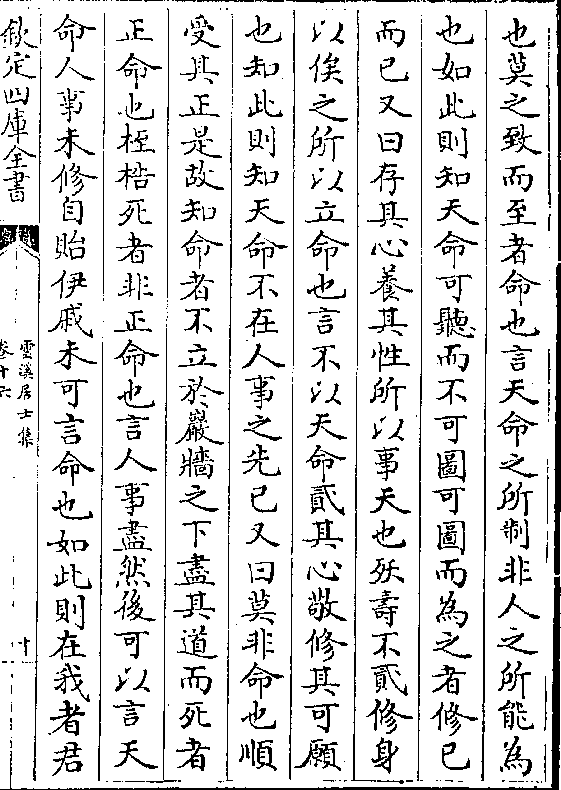 也莫之致而至者命也言天命之所制非人之所能為
也如此則知天命可聽而不可圖可圖而為之者修已
而已又曰存其心養其性所以事天也殀壽不貳修身
以俟之所以立命也言不以天命貳其心敬修其可願
也知此則知天命不在人事之先已又曰莫非命也順
受其正是故知命者不立於巖牆之下盡其道而死者
正命也桎梏死者非正命也言人事盡然後可以言天
命人事未修自貽伊戚未可言命也如此則在我者君
欽定四庫全書
雲溪居士集
卷十六
十